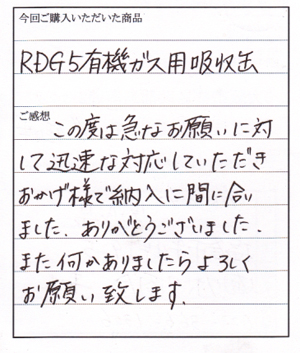 今回ご購入いただいた商品
RDG5有機ガス用吸収缶
ご感想
この度は急なお願いに対
して迅速な対応していただき
おかげ様で納入に間に合い
ました。ありがとうございました。
また何かありましたらよろしく
お願い致します。